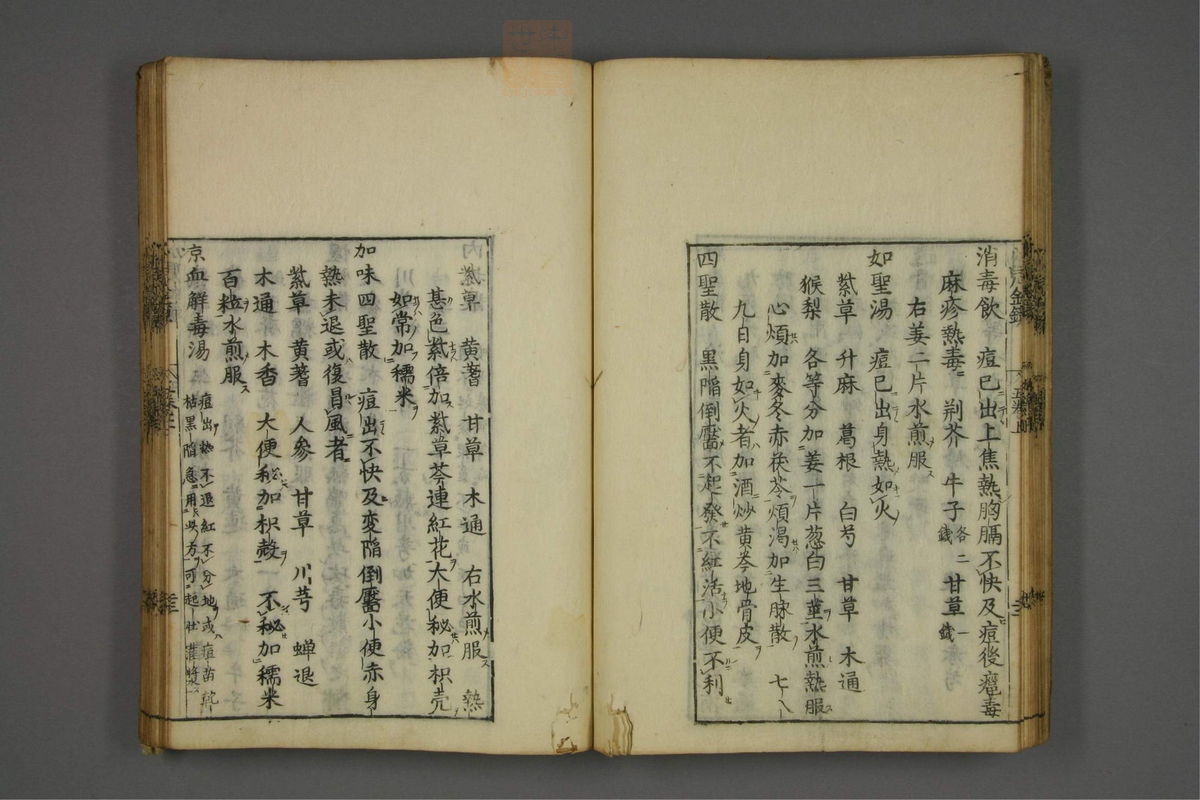 消毒飲 痘已出上焦熱胸膈不快及痘後癰毒
麻疹熱毒 荆芥 牛子各二錢 甘草一錢
右姜二片水煎服
如聖湯 痘已出身熱如火
紫草 升麻 葛根 白芍 甘草 木通
猴梨 各等分加姜一片葱白三莖水煎熱服
心煩加麥冬赤茯苓煩渴加生脉散 七八
九日身如火者加酒炒黄芩地骨皮
四聖散 黒陥倒靨不起發不紅活小便不利
内 紫草 黄蓍 甘草 木通 右水煎服 熱
甚色紫倍加紫草芩連紅花大便秘加枳壳
如常加糯米
加味四聖散 痘出不快及変陥倒靨小便赤身
熱未退或復冒風者
紫草 黄蓍 人參 甘草 川芎 蝉退
木通 木香 大便秘加枳殻 不秘加糯米
百粒水煎服
京血解毒湯 痘出熱不退紅不分地或痘苗乾
枯黒陥急用此方可起壮灌漿